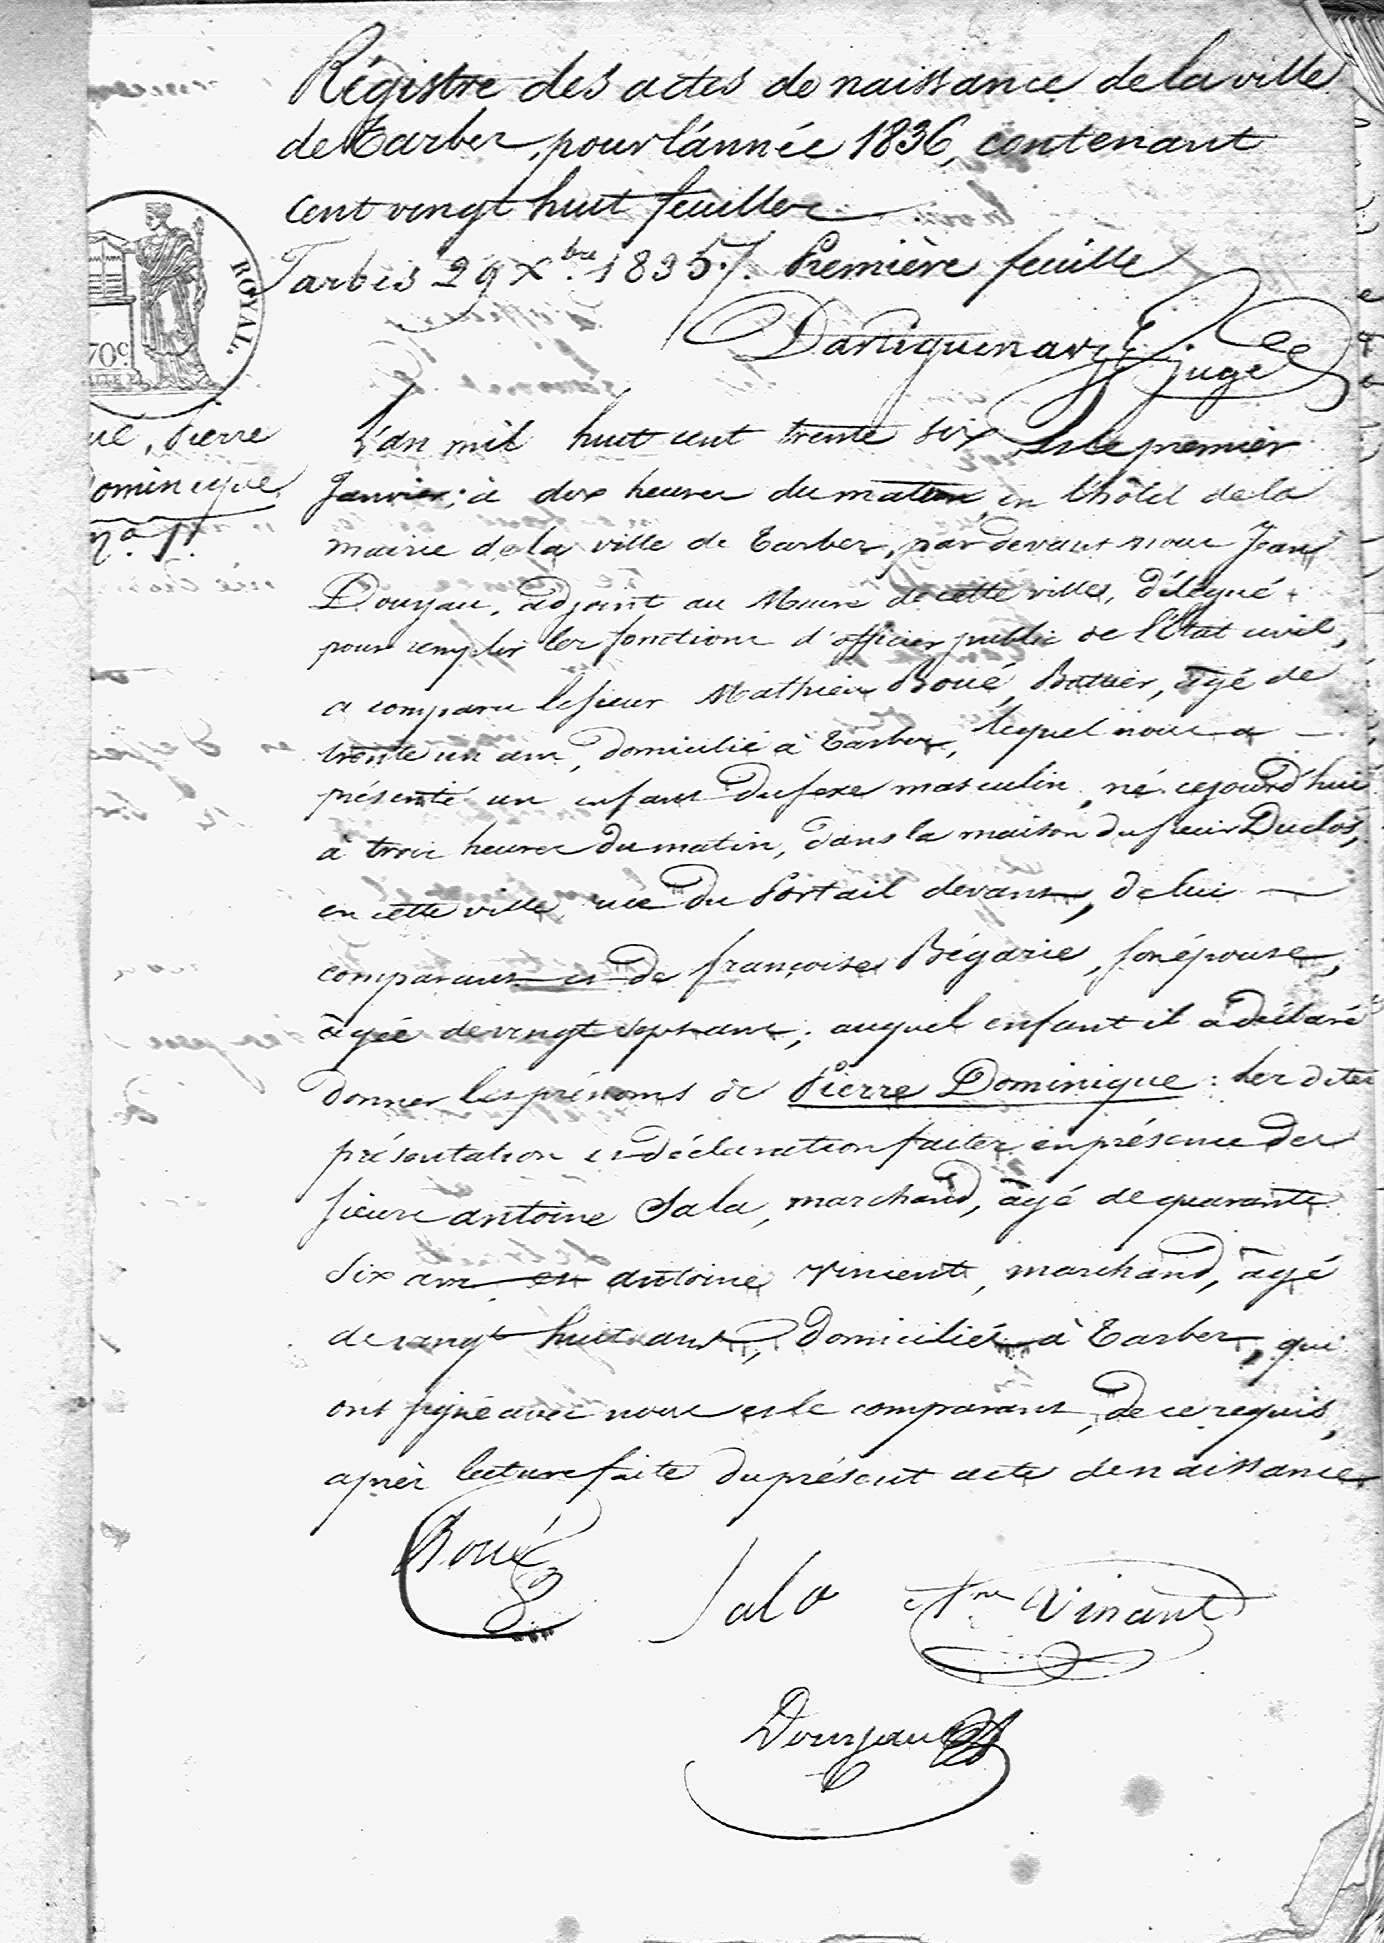 Régistre des actes de naissance de la ville
de Tarbes, pour l'année 1836, contenant
cent vingt huit feuilles.
Tarbes 29 Xbre 1835. Première feuille
Juge
ROYAL.
70c
ué, Pierre
Dominique
No 1er
L'an mil huit cent trente six et le premier
Janvier, à dix heures du matin, en l'hôtel de la
mairie de la ville de Tarbes, par devant nous Jean
Douyau, adjoint au Maire de cette ville, délégué
pour remplir les fonctions d'officier public de l'État civil,
a comparu le sieur Mathieu Boué, âgé de
trente un ans, domicilié à Tarbes, lequel nous a
présenté un enfant du sexe masculin, né cejourd'hui
à trois heures du matin, dans la maison du sieur Duclos,
en cette ville, rue du Portail devant, de lui
comparant et de françoise Bégarie, son épouse,
âgée de vingt sept ans; auquel enfant il a déclaré
donner les prénoms de Pierre Dominique : les dites
présentation et déclaration faites en présence des
sieurs antoine Sala, marchand, âgé de quarante
six ans, et antoine Vincent, marchand, âgé
de vingt huit ans, domiciliés à Tarbes, qui
ont signé avec nous et le comparant, de ce requis,
après lecture faite du présent acte de naissance
Boué
Sala Ane Vincent
Douyau